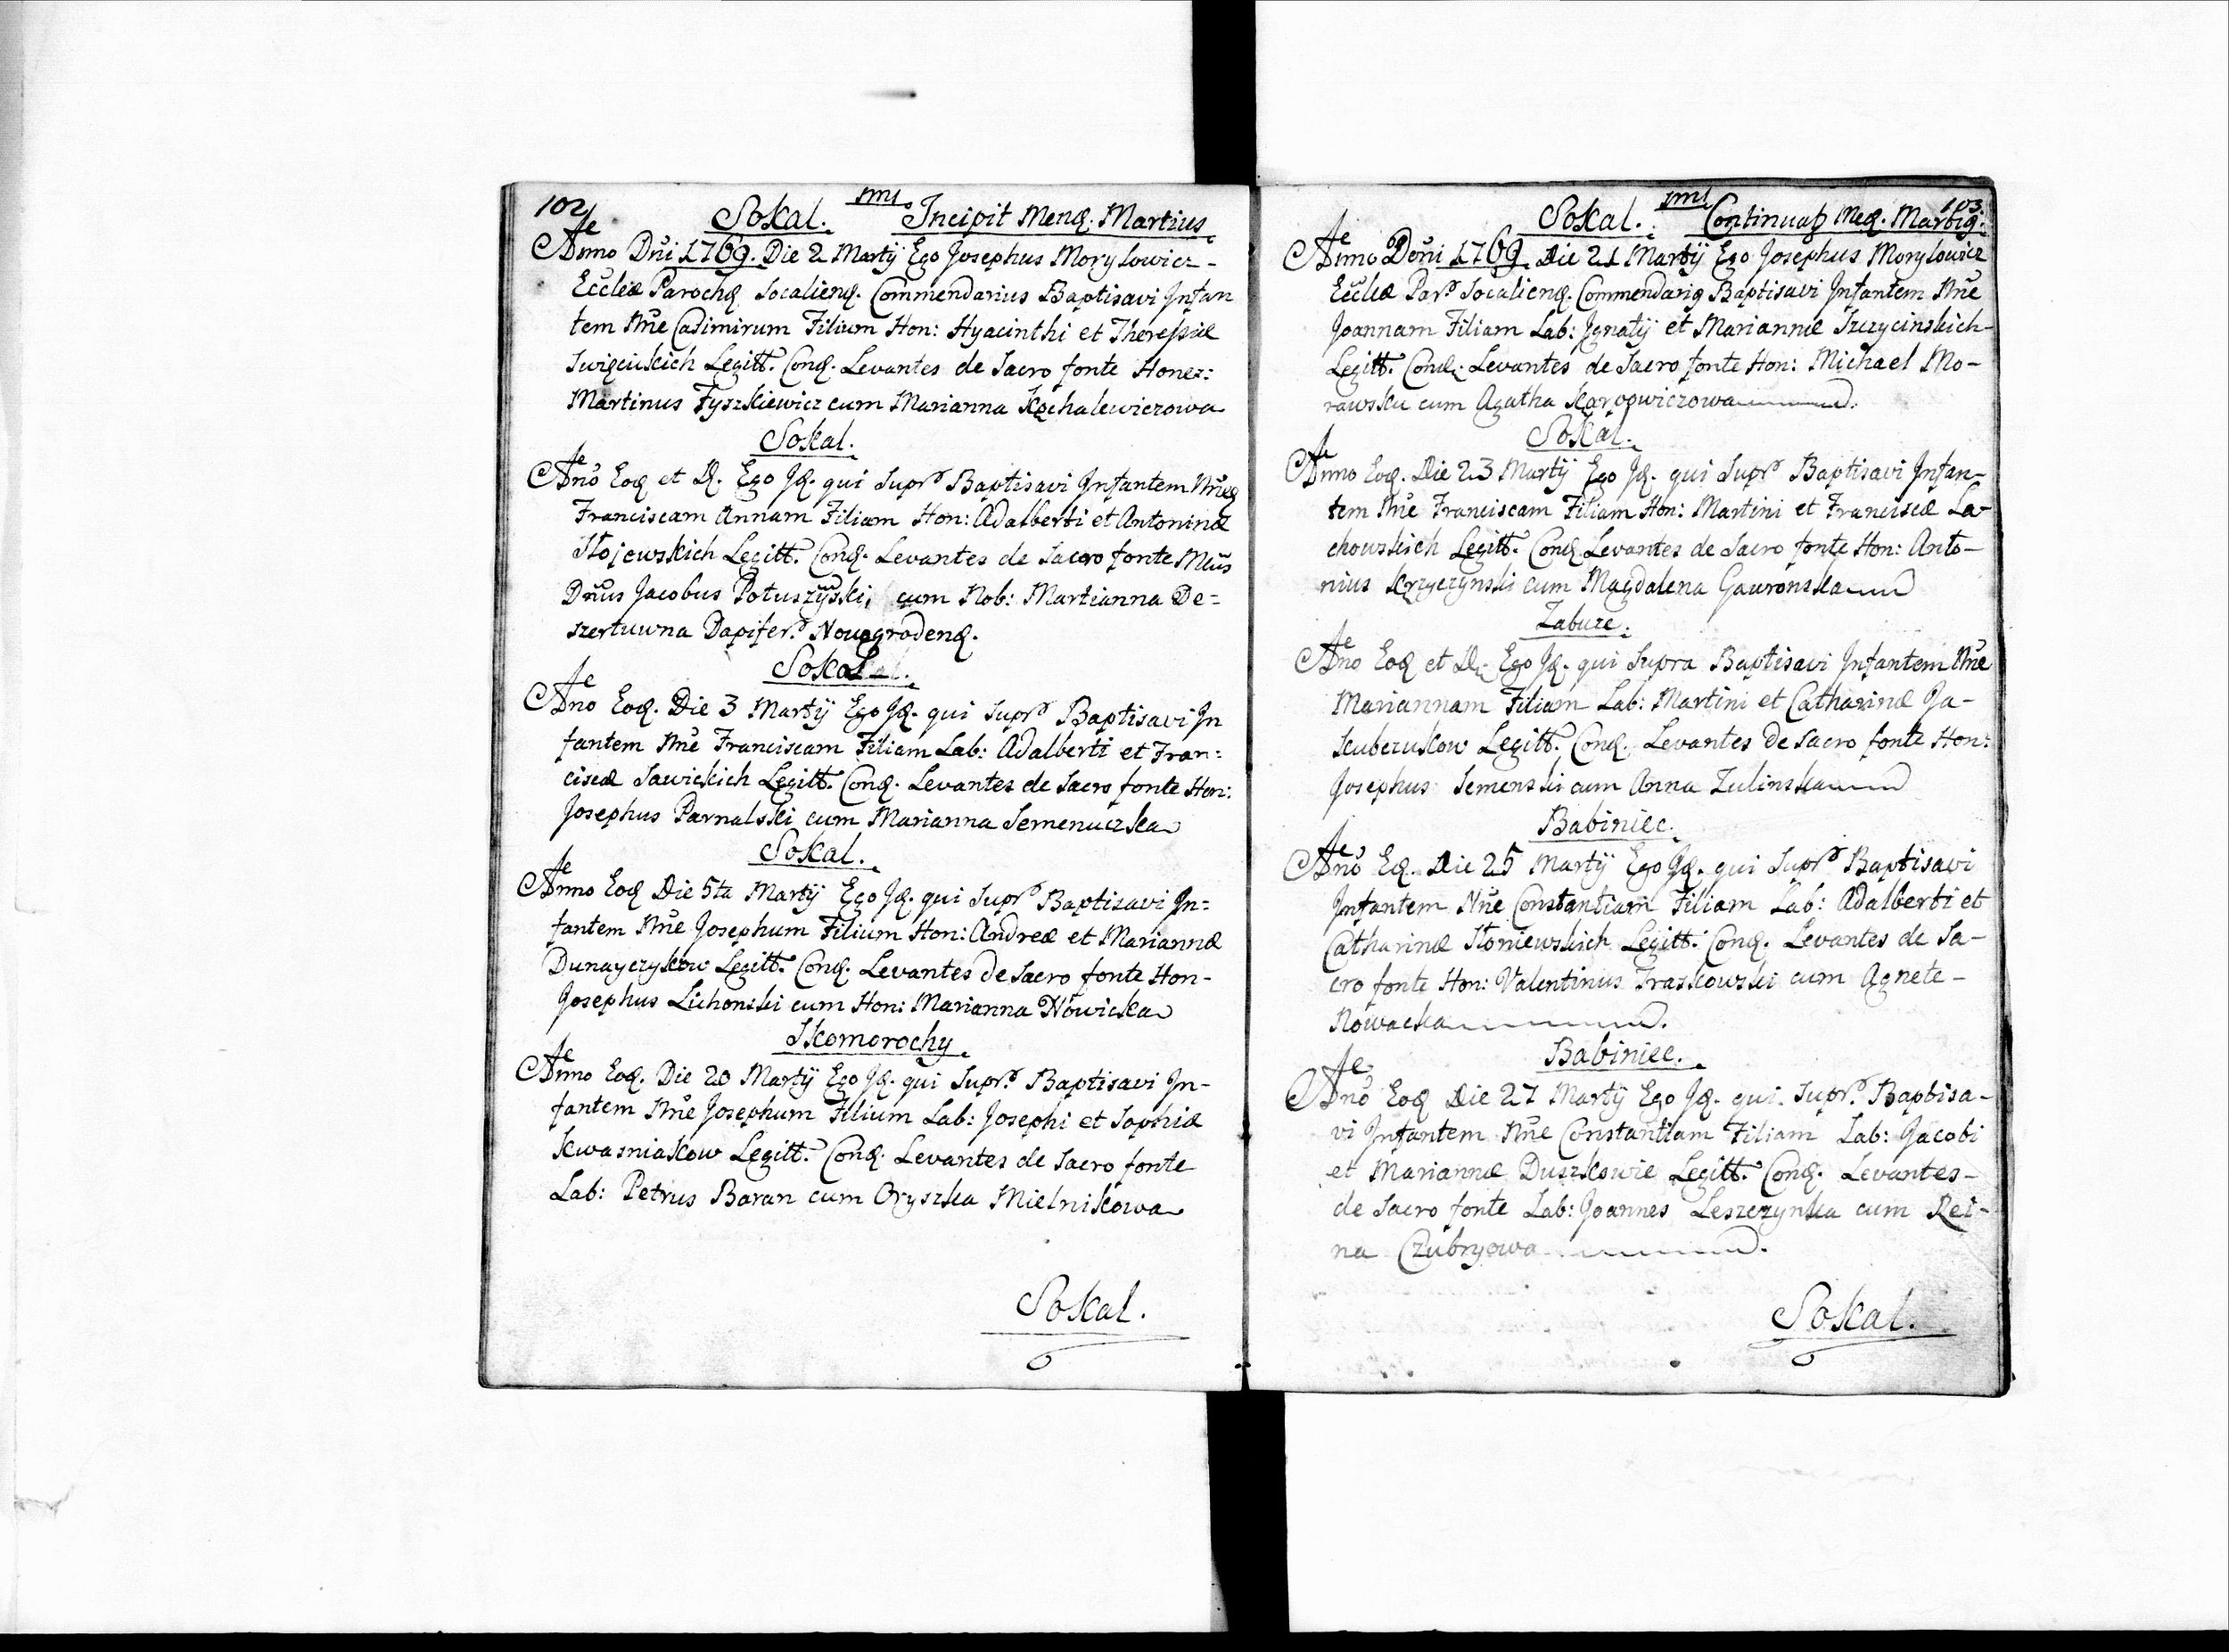 102
Sokal. Incipit Menq. Martius
Anno Dni 1769. Die 2 Martÿ Ego Josephus Morylowicz -
Ecclæ Parochq Socalienq. Commendarius Baptisavi Infan
tem Nne Casimirum Filium Hon: Hyacinthi et Theressiæ
Swięcickich Legitt. Conq. Levantes de Sacro fonte Hones:
Martinus Fyszkiewicz cum Marianna Kochalewiczowa
Sokal.
Ano Eoq et D. Ego Jq. qui Supra Baptisavi Infantem Nneq
Franciscam Annam Filiam Hon: Adalberti et Antoninæ
Stojowskich Legitt. Conq. Levantes de Sacro fonte Mcus
Dnus Jacobus Potuszÿski, cum Nob: Martianna De=
szertuwna Dapifer. Novogrodenq.
Sokal.
Ano Eoq. Die 3 Martÿ Ego Jq. qui Supra Baptisavi In
fantem Nne Franciscam Filiam Lab: Adalberti et Fran:
ciscæ Sawickich Legitt. Conq. Levantes de Sacro fonte Hon:
Josephus Parnalski cum Marianna Semenuczka
Sokal.
Anno Eoq Die 5ta Martÿ Ego Jq. qui Supra Baptisavi In=
fantem Nne Josephum Filium Hon: Andreæ et Mariannæ
Dunayczykow Legitt. Conq. Levantes de Sacro fonte Hon-
Josephus Lichonski cum Hon: Marianna Nowicka
Skomorochy
Anno Eoq. Die 20 Martÿ Ego Jq. qui Supra Baptisavi In-
fantem Nne Josephum Filium Lab: Josephi et Sophiæ
Kwasniakow Legitt. Conq. Levantes de Sacro fonte
Lab: Petrus Baran cum Oryszka Mielnikowa
Sokal.
103
Sokal. Continuatq Meq. Martiq.
Anno Domi 1769. Die 21 Martÿ Ego Josephus Morylowicz
Ecclæ Par. Socalienq. Commendariq Baptisavi Infantem Nne
Joannam Filiam Lab: Ignatÿ et Mariannæ Szczycinskich-
Legitt. Conq. Levantes de Sacro fonte Hon: Michael Mo-
rawski cum Agatha Karpowiczowa
Sokal.
Anno Eoq. Die 23 Martÿ Ego Jq. qui Supra Baptisavi Infan-
tem Nne Franciscam Filiam Hon: Martini et Franciscæ La-
chowskich Legitt. Conq Levantes de Sacro fonte Hon: Anto-
nius Krzyczynski cum Magdalena Gawronska
Zabuze.
Ano Eoq et D. Ego Jq. qui Supra Baptisavi Infantem Nne
Mariannam Filiam Lab: Martini et Catharinæ Ja-
kubczukow Legitt. Conq. Levantes de Sacro fonte Hon:
Josephus Semenski cum Anna Zulinska
Babiniec.
Ano Eq. Die 25 Martÿ Ego Jq. qui Supra Baptisavi
Infantem Nne Constantiam Filiam Lab: Adalberti et
Catharinæ Stoniewskich Legitt. Conq. Levantes de Sa-
cro fonte Hon: Valentinus Fraskowski cum Agnete-
Nowacka
Babiniec.
Ano Eoq Die 27 Martÿ Ego Jq. qui Supra Baptisa-
vi Infantem Nne Constantiam Filiam Lab: Jacobi
et Mariannæ Duszkowie Legitt. Conq. Levantes-
de Sacro fonte Lab: Joannes Leszczynka cum Rei-
na Czubryowa
Sokal.